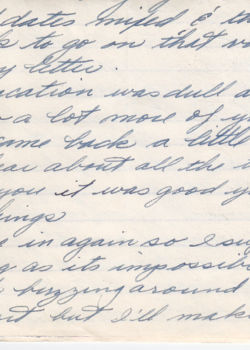 dates mixed &
to go on that
letter.
cation was dull a
a lot more of y
came back a little
ear about all the
you it was good y
hings
e in again so I su
g as its impossib
buzzing around
but I'll mak